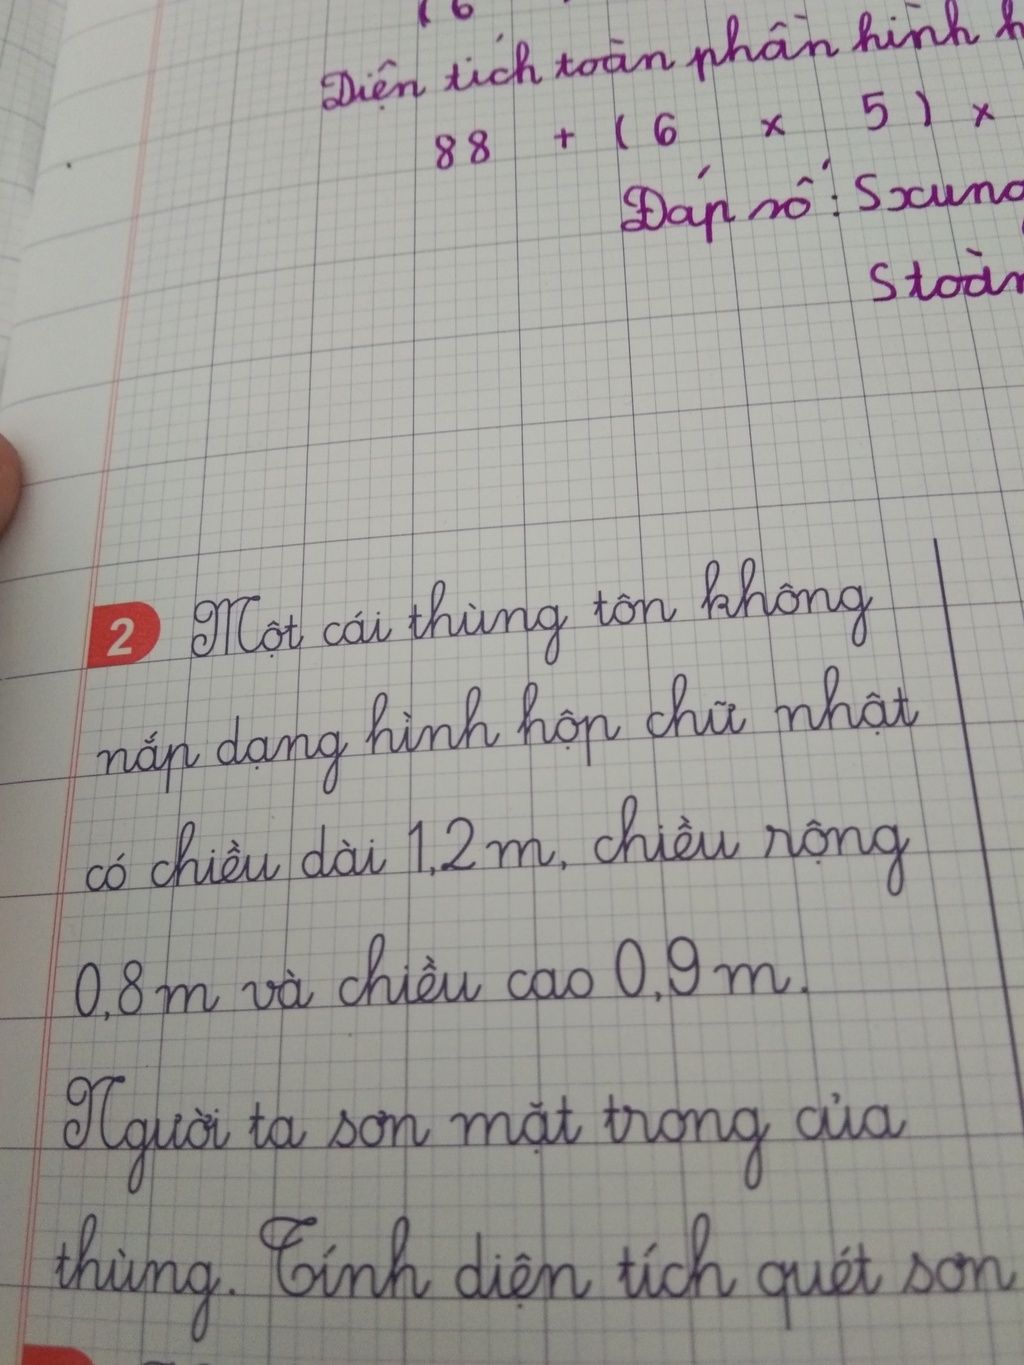 Diện tích toàn phần hình h
88 + ( 6 x 5 ) x
Đáp số : Sxung
Stoàn
2 Một cái thùng tôn không
nắp dạng hình hộp chữ nhật
có chiều dài 1,2 m, chiều rộng
0,8 m và chiều cao 0,9 m.
Người ta sơn mặt trong của
thùng. Tính diện tích quét sơn